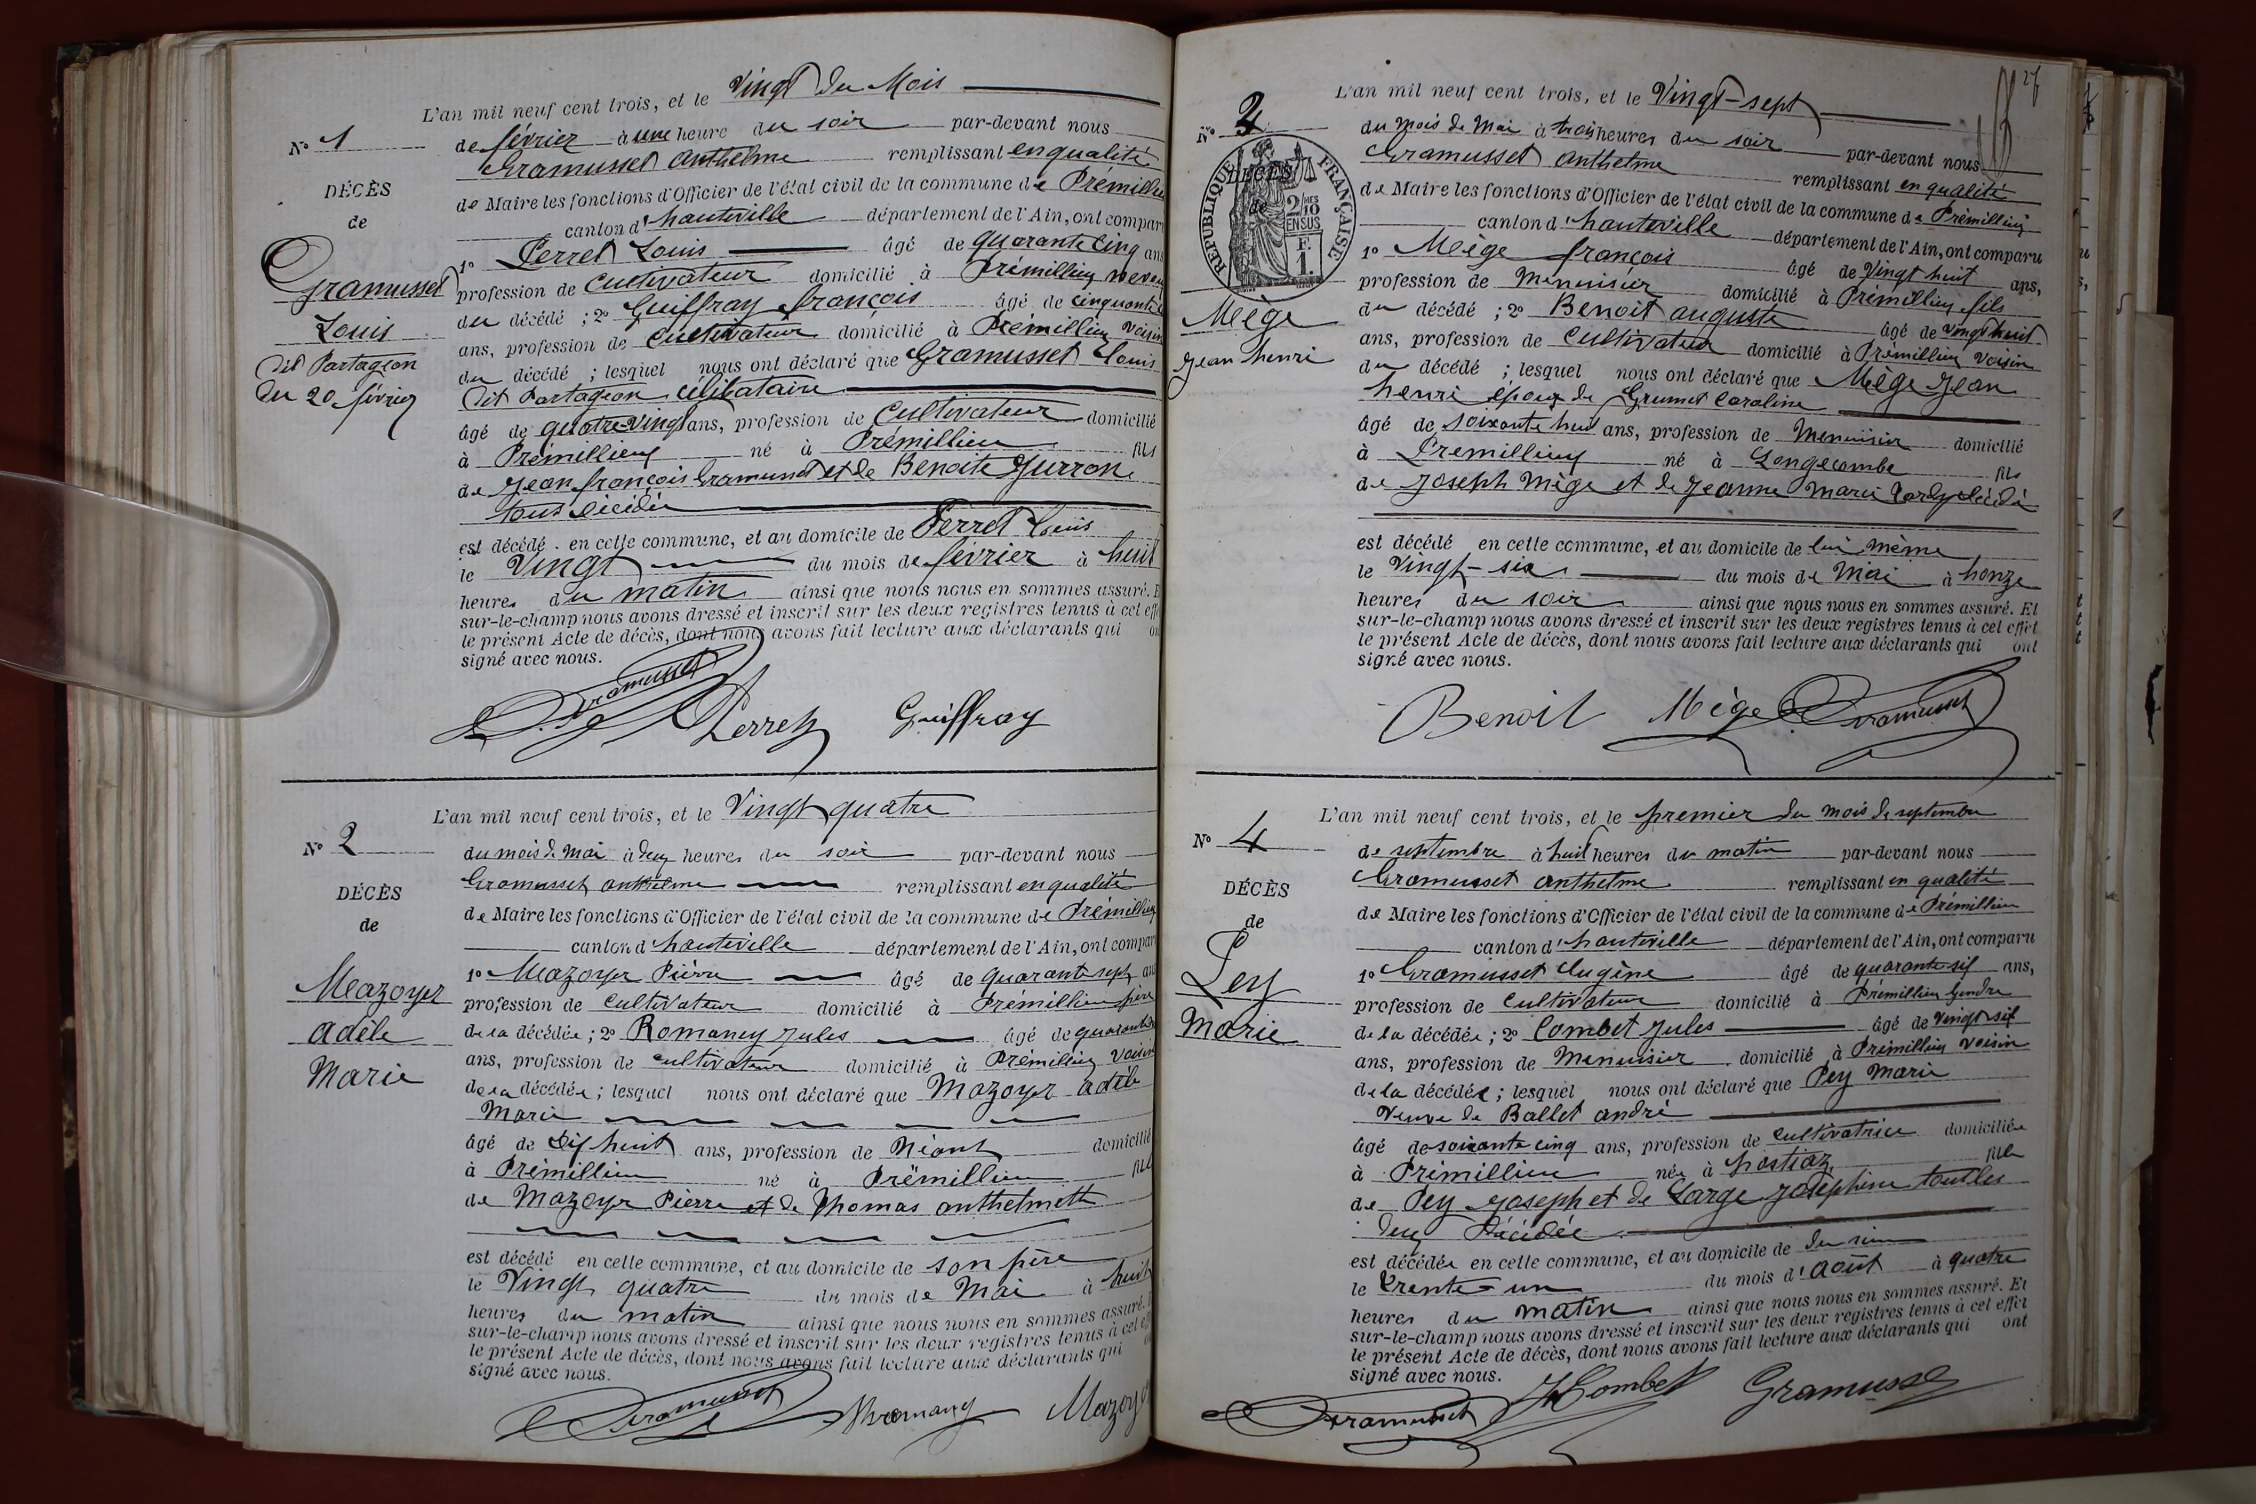 L'an mil neuf cent trois, et le Vingt du Mois
N° 1
de février à une heure du soir par-devant nous
Gramusset Anthelme remplissant en qualité
DÉCÈS
de Maire les fonctions d'Officier de l'état civil de la commune de Prémillieu
de
canton d'hauteville département de l'Ain, ont comparu
Gramusset
1° Perret Louis âgé de quarante cinq ans
profession de Cultivateur domicilié à Prémillieu neveu
Louis
du décédé ; 2° Guiffray françois âgé de cinquante
ans, profession de Cultivateur domicilié à Prémillieu voisin
dit Partageon
du décédé ; lesquel nous ont déclaré que Gramusset Louis
du 20 février
dit Partageon célibataire
âgé de quatre-vingt ans, profession de Cultivateur domicilié
à Prémillieu né à Prémillieu fils
de Jean françois Gramusset et de Benoite Jurron
tous décédés
est décédé en cette commune, et au domicile de Perret Louis
le Vingt du mois de février à huit
heures du matin ainsi que nous nous en sommes assuré. Et
sur-le-champ nous avons dressé et inscrit sur les deux registres tenus à cet effet
le présent Acte de décès, dont nous avons fait lecture aux déclarants qui ont
signé avec nous.
Gramusset Perret Guiffray
L'an mil neuf cent trois, et le Vingt quatre
N° 2
du mois de Mai à deux heures du soir par-devant nous
Gramusset anthelme remplissant en qualité
DÉCÈS
de Maire les fonctions d'Officier de l'état civil de la commune de Prémillieu
de
canton d'hauteville département de l'Ain, ont comparu
Mazoyer
1° Mazoyer Pierre âgé de quarante sept ans
profession de Cultivateur domicilié à Prémillieu père
adèle
de la décédée ; 2° Romaney Jules âgé de quarante
ans, profession de cultivateur domicilié à Prémillieu voisin
Marie
de la décédée ; lesquel nous ont déclaré que Mazoyer adèle
Marie
âgé de dix huit ans, profession de Néant domicilié
à Prémillieu né à Prémillieu fille
de Mazoyer Pierre et de Thomas anthelmette
est décédé en cette commune, et au domicile de son père
le Vingt quatre du mois de Mai à huit
heures du matin ainsi que nous nous en sommes assuré.
sur-le-champ nous avons dressé et inscrit sur les deux registres tenus à cet effet
le présent Acte de décès, dont nous avons fait lecture aux déclarants qui
signé avec nous.
Gramusset Romaney Mazoyer
27
L'an mil neuf cent trois, et le Vingt-sept
N° 3
du mois de Mai à trois heures du soir par-devant nous
Gramusset anthelme remplissant en qualité
DÉCÈS
de
RÉPUBLIQUE FRANÇAISE
2/10 MES EN SUS
F. 1.
de Maire les fonctions d'Officier de l'état civil de la commune de Prémillieu
canton d'hauteville département de l'Ain, ont comparu
1° Mège françois âgé de Vingt huit ans,
profession de Menuisier domicilié à Prémillieu fils
Mège
du décédé ; 2° Benoit auguste âgé de vingt huit
ans, profession de Cultivateur domicilié à Prémillieu voisin
Jean henri
du décédé ; lesquel nous ont déclaré que Mège Jean
henri époux de Grumet Caroline
âgé de soixante huit ans, profession de Menuisier domicilié
à Prémillieu né à Longecombe fils
de Joseph Mège et de Jeanne Marie décédé
est décédé en cette commune, et au domicile de lui même
le Vingt-six du mois de Mai à honze
heures du soir ainsi que nous nous en sommes assuré. Et
sur-le-champ nous avons dressé et inscrit sur les deux registres tenus à cet effet
le présent Acte de décès, dont nous avons fait lecture aux déclarants qui ont
signé avec nous.
Benoit Mège Gramusset
L'an mil neuf cent trois, et le premier du mois de septembre
N° 4
de septembre à huit heures du matin par-devant nous
Gramusset anthelme remplissant en qualité
DÉCÈS
de Maire les fonctions d'Officier de l'état civil de la commune de Prémillieu
de
canton d'hauteville département de l'Ain, ont comparu
Pey
1° Gramusset Eugène âgé de quarante six ans,
profession de Cultivateur domicilié à Prémillieu Gendre
Marie
de la décédée ; 2° Combet Jules âgé de vingt six
ans, profession de Menuisier domicilié à Prémillieu voisin
de la décédée ; lesquel nous ont déclaré que Pey Marie
Veuve de Ballet andré
âgé de soixante cinq ans, profession de cultivatrice domiciliée
à Prémillieu née à hostiaz fille
de Pey Joseph et de Large Josephine tout les
deux Décédée
est décédée en cette commune, et au domicile de du sien
le trente-un du mois d'août à quatre
heures du matin ainsi que nous nous en sommes assuré. Et
sur-le-champ nous avons dressé et inscrit sur les deux registres tenus à cet effet
le présent Acte de décès, dont nous avons fait lecture aux déclarants qui ont
signé avec nous.
Gramusset J Combet Gramusset